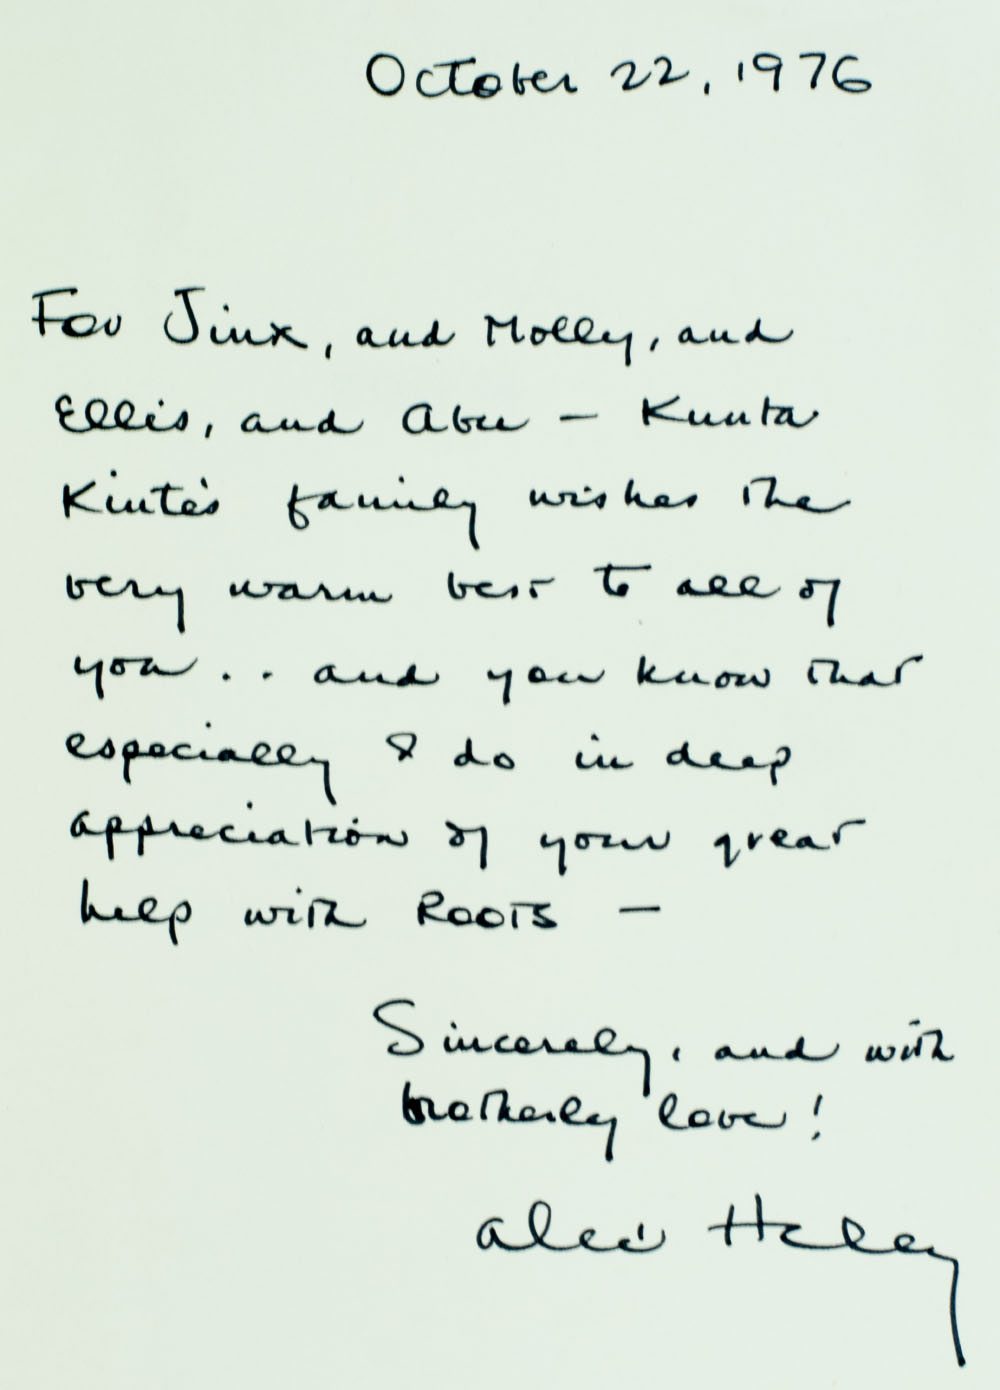 October 22, 1976
For Jinx, and Molly, and
Ellis, and Abu — Kunta
Kinte's family wishes the
very warm best to all of
you .. and you know that
especially I do in deep
appreciation of your great
help with ROOTS —
Sincerely, and with
brotherly love!
Alex Haley